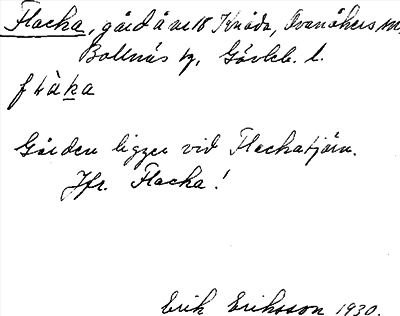 Flacka, gård å nr 18 Knåda, Ovanåkers sn,
Bollnäs tg, Gävleb. l.
Gården ligger vid Flackatjärn.
Jfr. Flacka!
Erik Eriksson 1930.